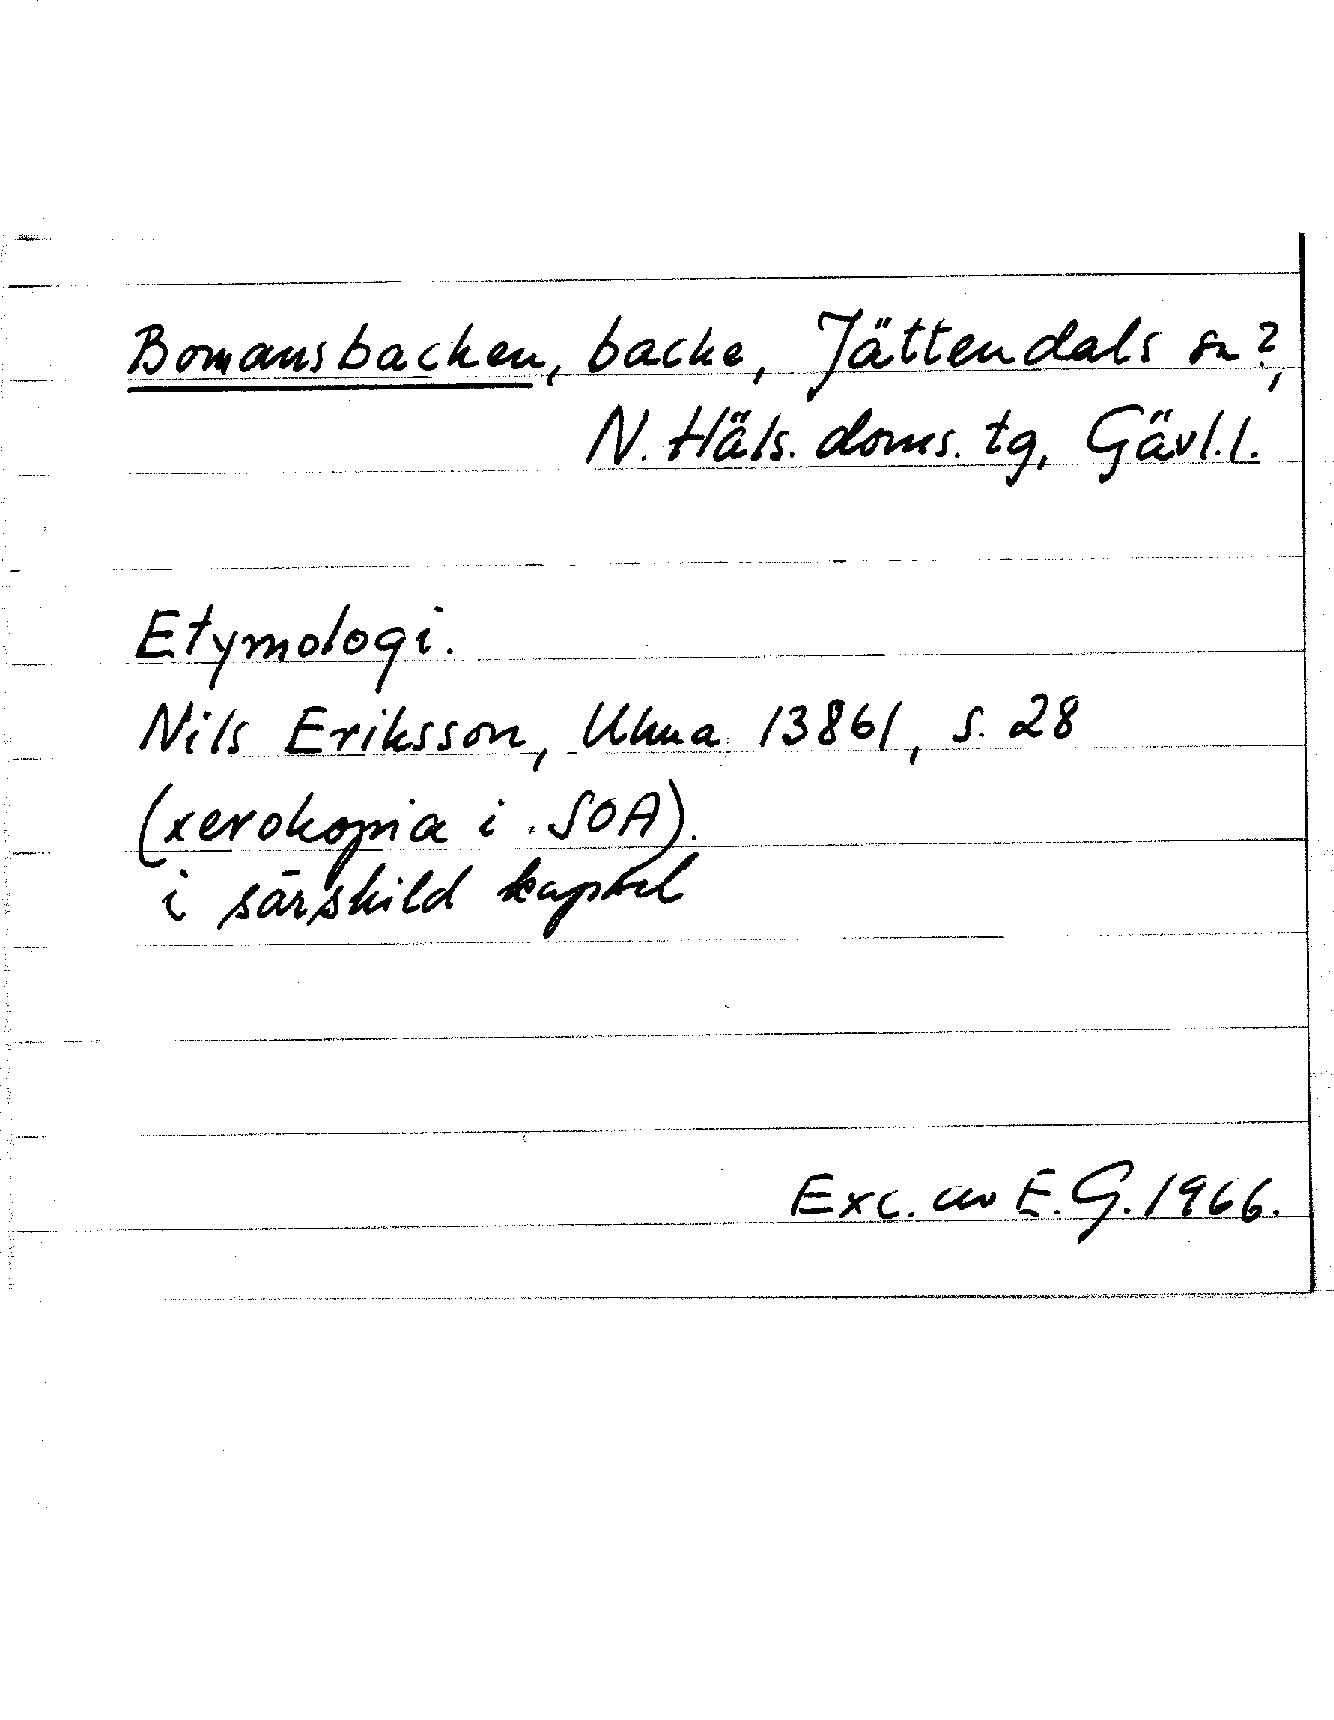 Bomansbacken, backe, Jättendals sn?,
N. Häls. doms. tg, Gävl. l.
Etymologi.
Nils Eriksson, Ukua 13861, s. 28
(xerokopia i SOA).
i särskild kapsel
Exc. av E. G. 1966.